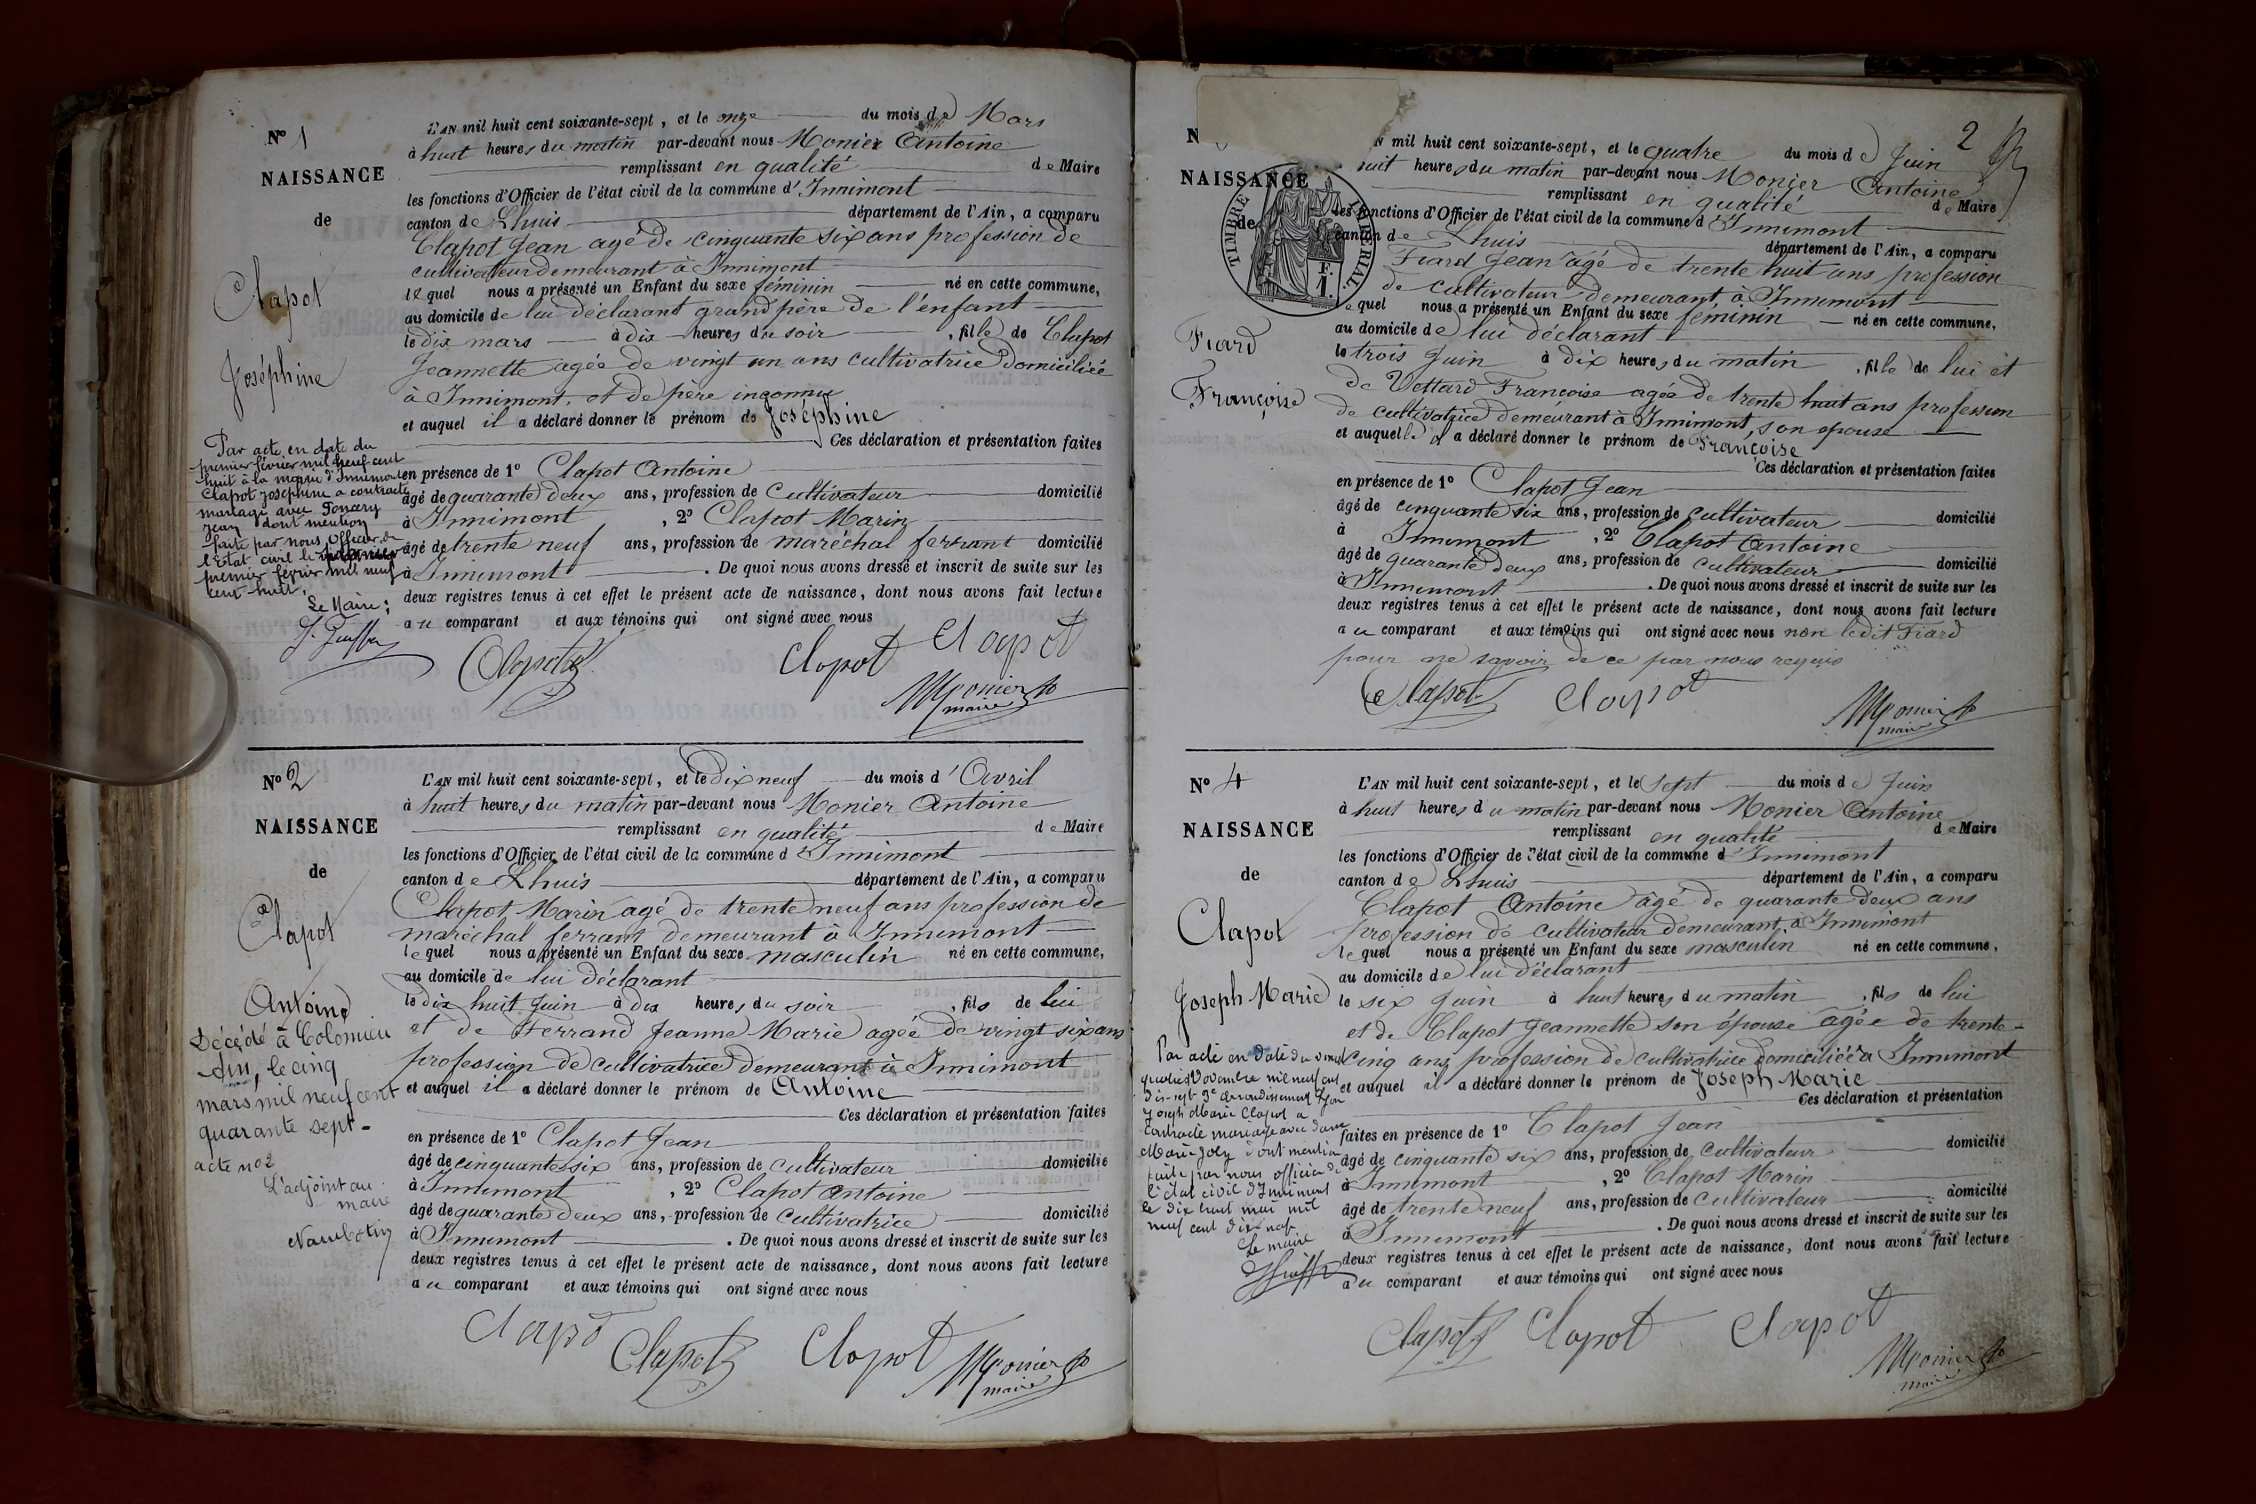 N° 1
NAISSANCE
de
Clapot
Joséphine
Par acte en date du
premier février mil neuf cent
huit à la mairie d'Innimont
Clapot Joséphine a contracté
mariage avec
Jean dont mention
faite par nous Officier de
l'Etat civil le
premier février mil neuf
cent huit.
Le Maire:
L'AN mil huit cent soixante-sept, et le onze du mois de Mars
à huit heures du matin par-devant nous Monier Antoine
remplissant en qualité de Maire
les fonctions d'Officier de l'état civil de la commune d'Innimont
canton de Lhuis département de l'Ain, a comparu
Clapot Jean agé de cinquante six ans profession de
cultivateur demeurant à Innimont
lequel nous a présenté un Enfant du sexe féminin né en cette commune,
au domicile de lui déclarant grand père de l'enfant
le dix mars à dix heures du soir, fille de Clapot
Jeannette agée de vingt un ans cultivatrice domiciliée
à Innimont, et de père inconnu
et auquel il a déclaré donner le prénom de Joséphine
Ces déclaration et présentation faites
en présence de 1° Clapot Antoine
âgé de quarante deux ans, profession de cultivateur domicilié
à Innimont, 2° Clapot Marin
âgé de trente neuf ans, profession de maréchal ferrant domicilié
à Innimont. De quoi nous avons dressé et inscrit de suite sur les
deux registres tenus à cet effet le présent acte de naissance, dont nous avons fait lecture
au comparant et aux témoins qui ont signé avec nous
Clapot Clapot Clapot
Monier
maire
N° 2
NAISSANCE
de
Clapot
Antoine
Décédé à Colomieu
Ain, le cinq
mars mil neuf cent
quarante sept-
acte n°2
L'adjoint au
maire
L'AN mil huit cent soixante-sept, et le dix neuf du mois d'Avril
à huit heures du matin par-devant nous Monier Antoine
remplissant en qualité de Maire
les fonctions d'Officier de l'état civil de la commune d'Innimont
canton de Lhuis département de l'Ain, a comparu
Clapot Marin agé de trente neuf ans profession de
maréchal ferrant demeurant à Innimont
lequel nous a présenté un Enfant du sexe masculin né en cette commune,
au domicile de lui déclarant
le dix huit Juin à dix heures du soir, fils de lui
et de Ferrand Jeanne Marie agée de vingt six ans
profession de cultivatrice demeurant à Innimont
et auquel il a déclaré donner le prénom de Antoine
Ces déclaration et présentation faites
en présence de 1° Clapot Jean
âgé de cinquante six ans, profession de cultivateur domicilié
à Innimont, 2° Clapot Antoine
âgé de quarante deux ans, profession de cultivatrice domicilié
à Innimont. De quoi nous avons dressé et inscrit de suite sur les
deux registres tenus à cet effet le présent acte de naissance, dont nous avons fait lecture
au comparant et aux témoins qui ont signé avec nous
Clapot Clapot Clapot Monier
maire
2
N
NAISSANCE
de
TIMBRE IMPERIAL.
F.
1.
Fiard
Françoise
N mil huit cent soixante-sept, et le quatre du mois de Juin
huit heures du matin par-devant nous Monier Antoine
remplissant en qualité de Maire
les fonctions d'Officier de l'état civil de la commune d'Innimont
canton de Lhuis département de l'Ain, a comparu
Fiard Jean agé de trente huit ans profession
de cultivateur demeurant à Innimont
lequel nous a présenté un Enfant du sexe féminin né en cette commune,
au domicile de lui déclarant
le trois Juin à dix heures du matin, fille de lui et
de Vettard Françoise agée de trente huit ans profession
de cultivatrice demeurant à Innimont, son épouse
et auquelle il a déclaré donner le prénom de Françoise
Ces déclaration et présentation faites
en présence de 1° Clapot Jean
âgé de cinquante six ans, profession de cultivateur domicilié
à Innimont, 2° Clapot Antoine
âgé de quarante deux ans, profession de cultivateur domicilié
à Innimont. De quoi nous avons dressé et inscrit de suite sur les
deux registres tenus à cet effet le présent acte de naissance, dont nous avons fait lecture
au comparant et aux témoins qui ont signé avec nous non ledit Fiard
pour ne savoir de ce par nous requis
Clapot Clapot Monier
maire
N° 4
NAISSANCE
de
Clapot
Joseph Marie
Par acte en date du vingt
quatre Novembre mil neuf cent
dix-sept 3e arrondissement Lyon
Joseph Marie Clapot a
contracté mariage avec dame
Marie Joly dont mention
faite par nous officier de
l'état civil d'Innimont
le dix huit mai mil
neuf cent dix neuf
Le maire
L'AN mil huit cent soixante-sept, et le sept du mois de Juin
à huit heures du matin par-devant nous Monier Antoine
remplissant en qualité de Maire
les fonctions d'Officier de l'état civil de la commune d'Innimont
canton de Lhuis département de l'Ain, a comparu
Clapot Antoine âgé de quarante deux ans
profession de cultivateur demeurant à Innimont
lequel nous a présenté un Enfant du sexe masculin né en cette commune,
au domicile de lui déclarant
le six Juin à huit heures du matin, fils de lui
et de Clapot Jeannette son épouse agée de trente-
cinq ans profession de cultivatrice domiciliée à Innimont
et auquel il a déclaré donner le prénom de Joseph Marie
Ces déclaration et présentation
faites en présence de 1° Clapot Jean
âgé de cinquante six ans, profession de cultivateur domicilié
à Innimont, 2° Clapot Marin
âgé de trente neuf ans, profession de cultivateur domicilié
à Innimont. De quoi nous avons dressé et inscrit de suite sur les
deux registres tenus à cet effet le présent acte de naissance, dont nous avons fait lecture
au comparant et aux témoins qui ont signé avec nous
Clapot Clapot Clapot
Monier
maire